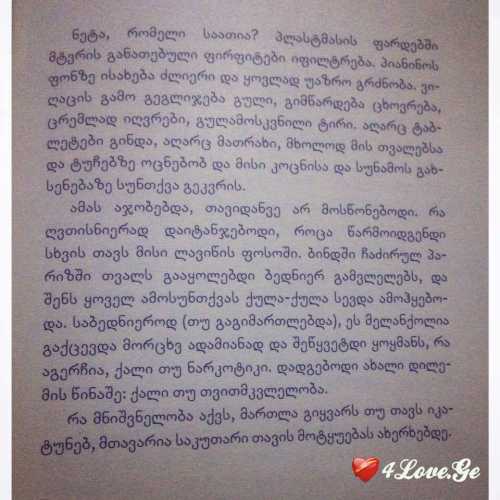 ნეტა, რომელი საათია? პლასტმასის ფარდებში
მტვრის განათებული ფირფიტები იფილტრება. პიანინოს
ფონზე ისახება ძლიერი და ყოვლად უაზრო გრძნობა. ვი-
ღაცის გამო გეგლიჯება გული, გიმწარდება ცხოვრება,
ცრემლად იღვრები, გულამოსკვნილი ტირი. აღარც ტაბ-
ლეტები გინდა, აღარც მათრახი, მხოლოდ მის თვალებსა
და ტუჩებზე ოცნებობ და მისი კოცნისა და სუნამოს გახ-
სენებაზე სუნთქვა გეკვრის.
ამას აჯობებდა, თავიდანვე არ მოსწონებოდი. რა
ღვთისნიერად დაიტანჯებოდი, როცა წარმოიდგენდი
სხვის თავს მისი ლავიწის ფოსოში. ბინდში ჩაძირულ პა-
რიზში თვალს გააყოლებდი ბედნიერ გამვლელებს, და
შენს ყოველ ამოსუნთქვას ქულა-ქულა სევდა ამოჰყებო-
და. საბედნიეროდ (თუ გაგიმართლებდა), ეს მელანქოლია
გაქცევდა მორცხვ ადამიანად და შეწყვეტდი ყოყმანს, რა
აგერჩია, ქალი თუ ნარკოტიკი. დადგებოდი ახალი დილე-
მის წინაშე: ქალი თუ თვითმკვლელობა.
რა მნიშვნელობა აქვს, მართლა გიყვარს თუ თავს იკა-
ტუნებ, მთავარია საკუთარი თავის მოტყუებას ახერხებდე.
4Love.Ge